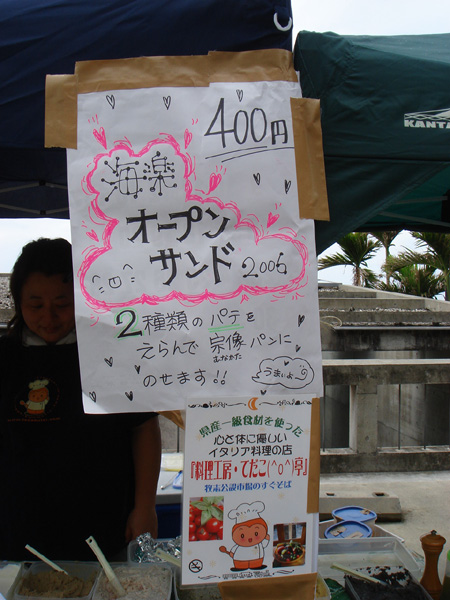 400円
海楽
オープン
サンド2006
2種類のパテを
えらんで宗像パンに
むなかた
のせます!!
うまいよー
県産一級食材を使った
心と体に優しい
イタリア料理の店
『料理工房・てだこ(^o^)亭』
牧志公設市場のすぐそば
KANTA